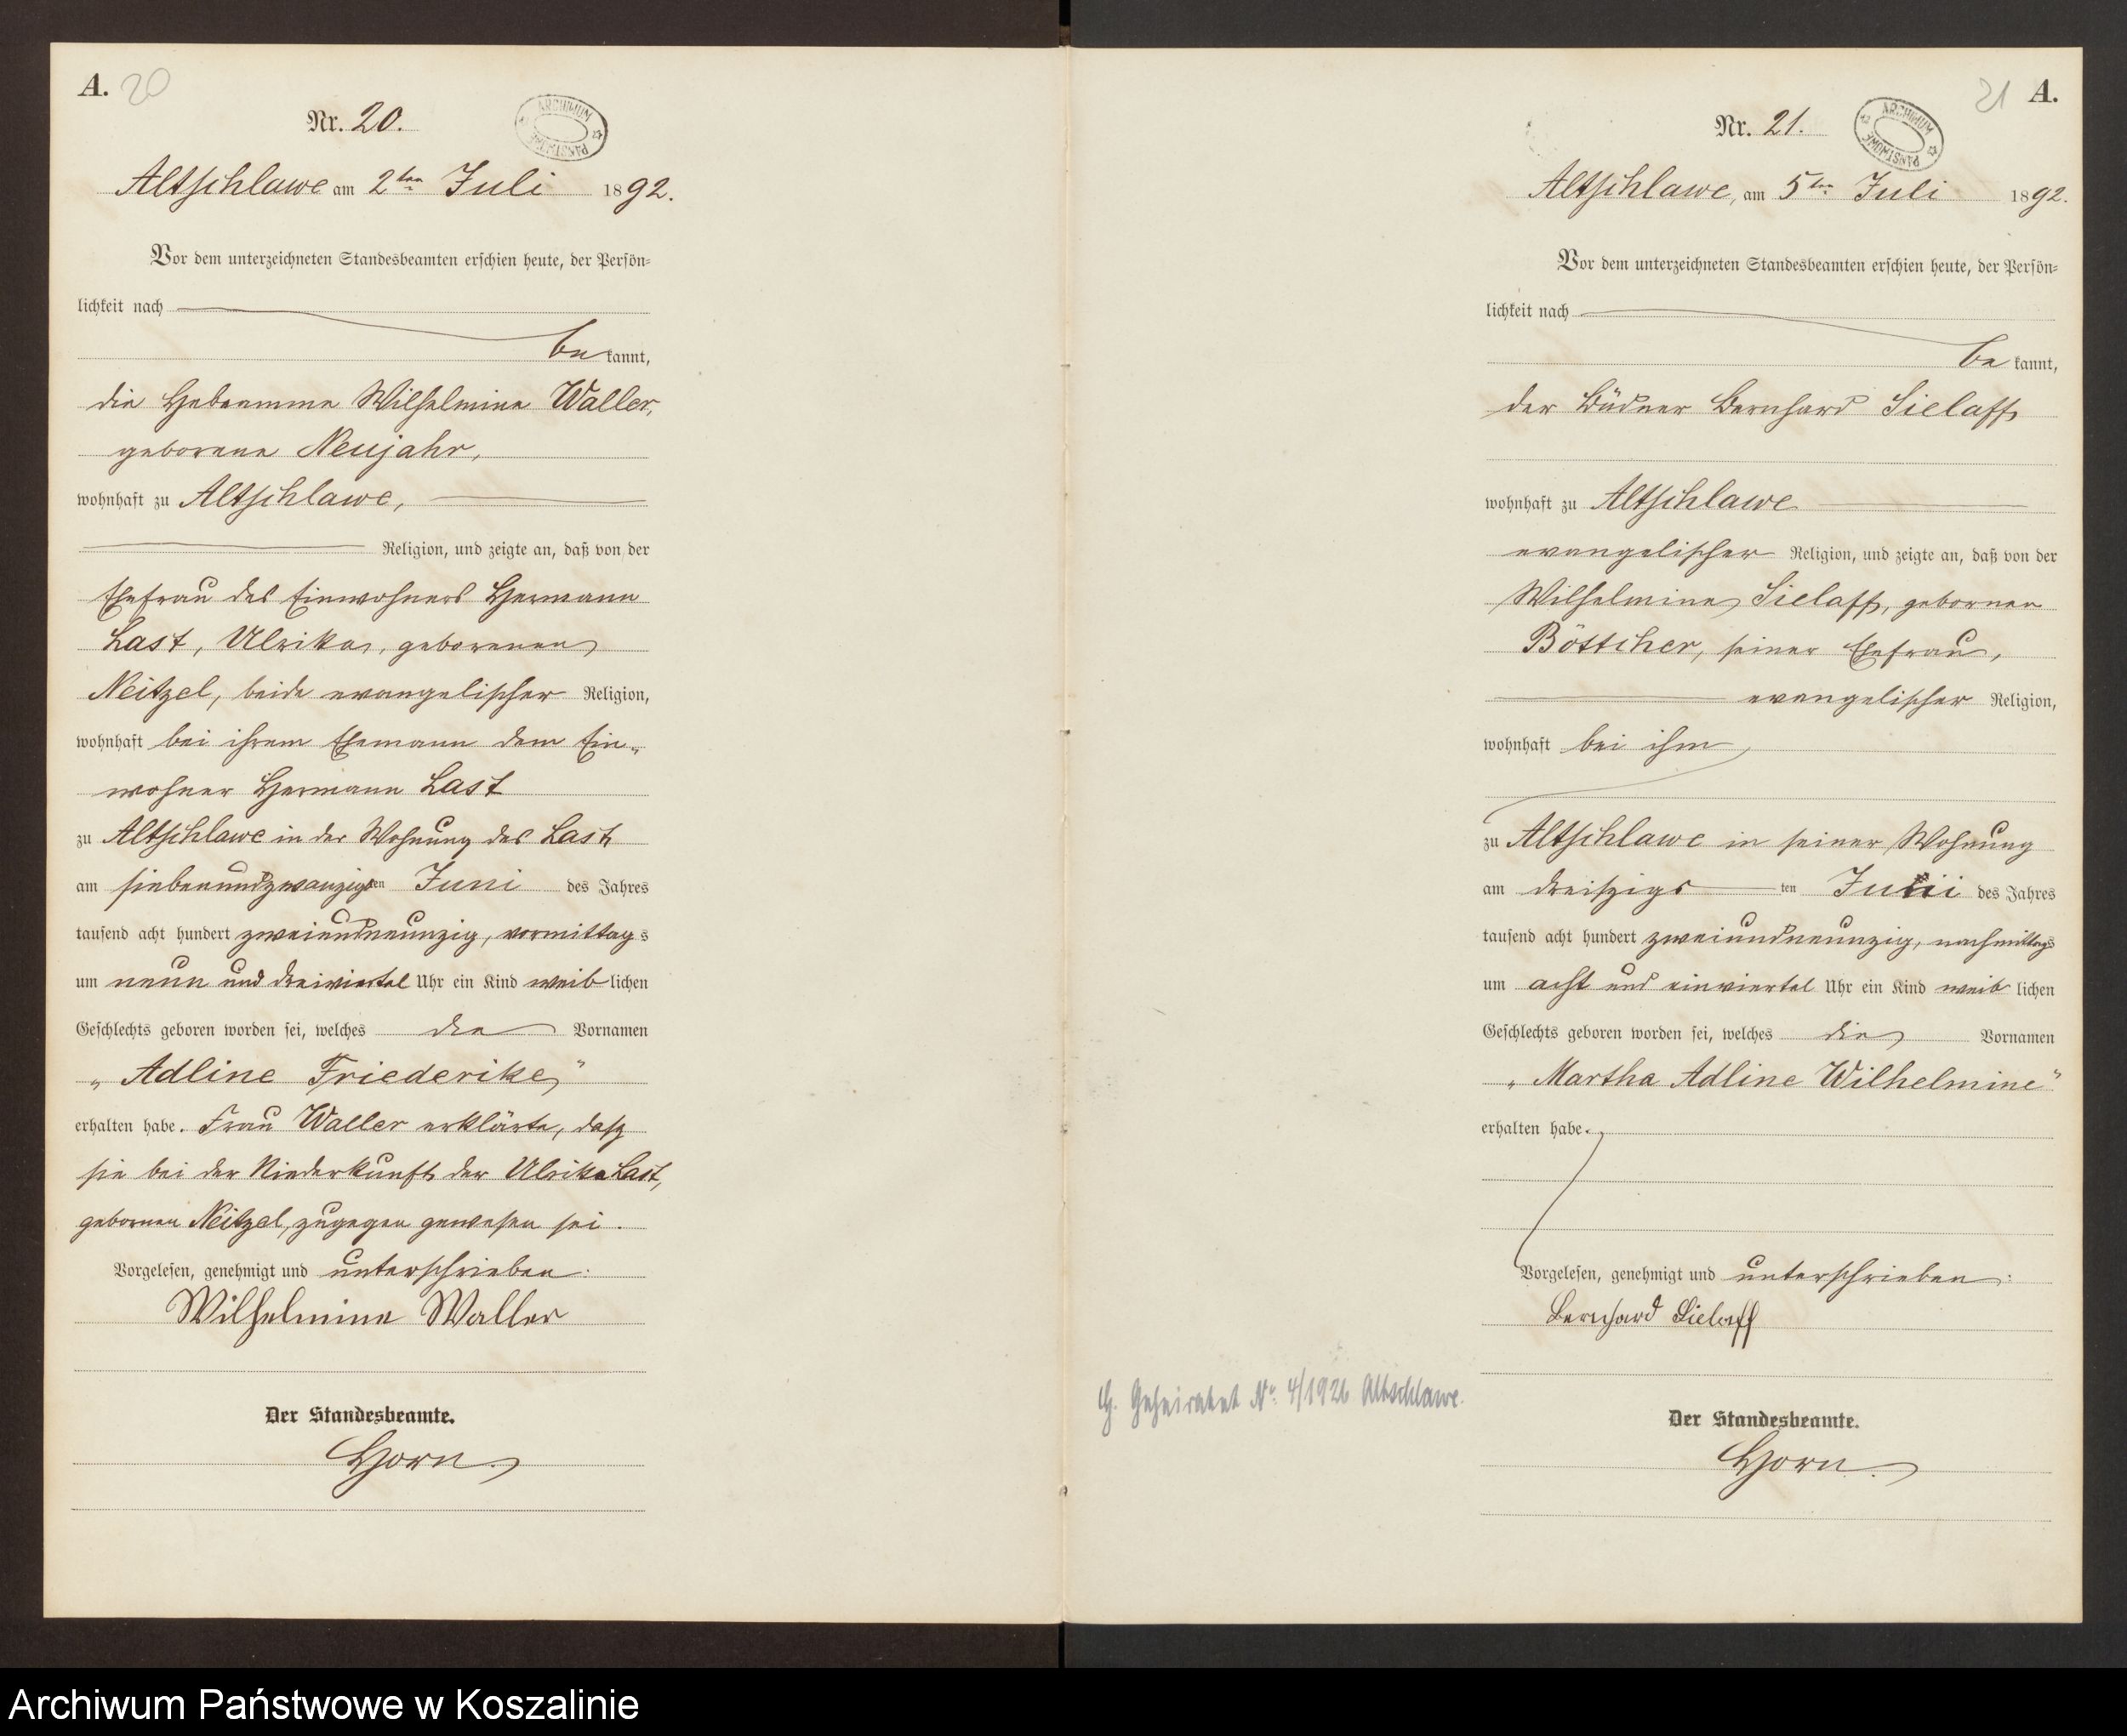 A. 20
Nr. 20.
ARCHIWUM PAŃSTWOWE
Altschlawe am 2ten Juli 1892.
Vor dem unterzeichneten Standesbeamten erschien heute, der Persön-
lichkeit nach
bekannt,
die Hebeamme Wilhelmine Waller,
geborene Neujahr,
wohnhaft zu Altschlawe,
Religion, und zeigte an, daß von der
Ehefrau des Einwohners Hermann
Last, Ulrike, geborenen
Neitzel, beide evangelischer Religion,
wohnhaft bei ihrem Ehemann dem Ein-
wohner Hermann Last
zu Altschlawe in der Wohnung des Last,
am siebenundzwanzigsten Juni des Jahres
tausend acht hundert zweiundneunzig, vormittags
um neun und dreiviertel Uhr ein Kind weiblichen
Geschlechts geboren worden sei, welches die Vornamen
„Adline Friederike"
erhalten habe. Frau Waller erklärte, daß
sie bei der Niederkunft der Ulrike Last,
gebornen Neitzel, zugegen gewesen sei.
Vorgelesen, genehmigt und unterschrieben:
Wilhelmine Waller
Der Standesbeamte.
Horn.
21 A.
Nr. 21.
ARCHIWUM PAŃSTWOWE
Altschlawe, am 5ten Juli 1892.
Vor dem unterzeichneten Standesbeamten erschien heute, der Persön-
lichkeit nach
bekannt,
der Büdner Bernhard Sielaff
wohnhaft zu Altschlawe
evangelischer Religion, und zeigte an, daß von der
Wilhelmine Sielaff, gebornen
Böttcher, seiner Ehefrau,
evangelischer Religion,
wohnhaft bei ihm
zu Altschlawe in seiner Wohnung
am dreißigsten Juni des Jahres
tausend acht hundert zweiundneunzig, nachmittags
um acht und einviertel Uhr ein Kind weiblichen
Geschlechts geboren worden sei, welches die Vornamen
„Martha Adline Wilhelmine"
erhalten habe.
Vorgelesen, genehmigt und unterschrieben:
Bernhard Sielaff
Geheiratet No. 4/1926 Altschlawe.
Der Standesbeamte.
Horn.
Archiwum Państwowe w Koszalinie